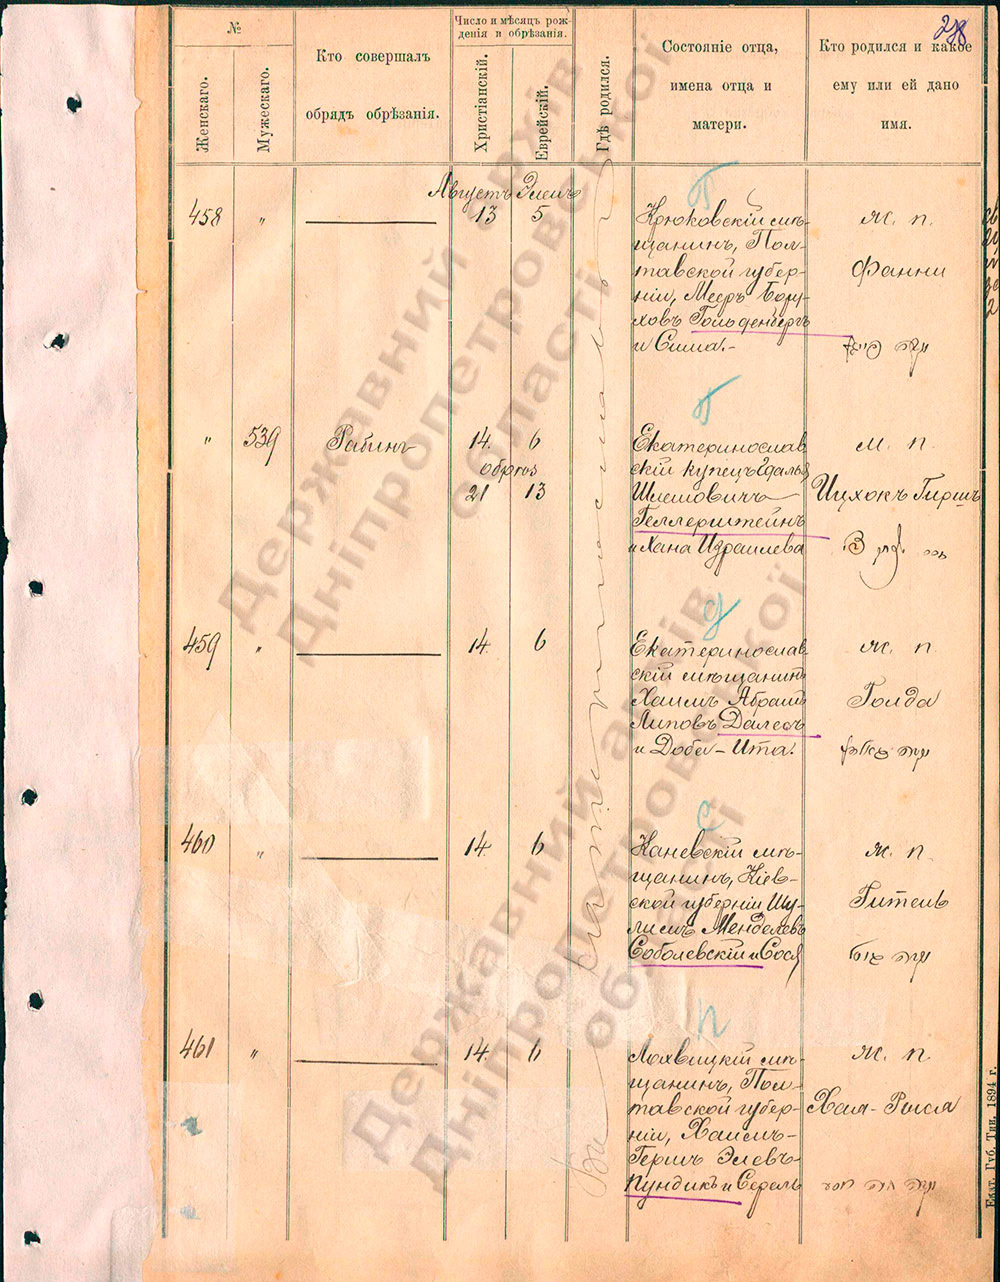 298
№
Женскаго.
Мужескаго.
Кто совершалъ
обрядъ обрѣзанія.
Число и мѣсяцъ рож-
денія и обрѣзанія.
Христіанскій.
Еврейскій.
Гдѣ родился.
Состояніе отца,
имена отца и
матери.
Кто родился и какое
ему или ей дано
имя.
Августъ Элелъ
458 " 13 5
Крюковскій мѣ-
щанинъ, Пол-
тавской губер-
ніи, Мееръ Бору-
ховъ Гольденбергъ
и Сима.-
ж. п.
Фанни
П
" 539 Рабинъ 14. 6
обрѣз
21 13
Екатеринослав
скій купецъ
Шлемовичъ
Геллерштейнъ
и Хана Израилева
м. п.
Ицхокъ Гиршъ
П
459 " 14. 6
Екатеринослав
скій мѣщанинъ
Хаимъ Абрамъ
Липовъ Далесъ
и Доба-Ита.
ж. п.
Голда
д
460 " 14. 6
Каневскій мѣ-
щанинъ, Кіев-
ской губерніи Шу-
лимъ Менделевъ
Соболевскій и Сося
ж. п.
Гитель
с
461 " 14. 6
Лохвицкій мѣ-
щанинъ, Пол-
тавской губер-
ніи, Хаимъ-
Гершъ Элевъ
Пундикъ и Серель
ж. п.
Хая-Рыся
п
Въ Екатеринославѣ
Екат. Губ. Тип. 1894 г.
Державний архів
Дніпропетровської
області
Державний архів
Дніпропетровської
області